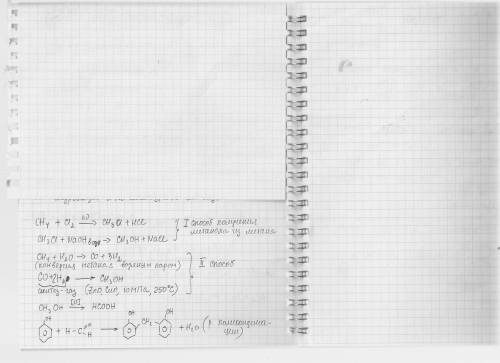 CH₄ + Cl₂ —hν→ CH₃Cl + HCl
CH₃Cl + NaOH водн → CH₃OH + NaCl
} I способ получения метанола из метана
CH₄ + H₂O → CO + 3H₂
(конверсия метана с водяным паром)
CO + 2H₂ → CH₃OH
синтез-газ (ZnO, CuO, 10 МПа, 250°C)
} II способ
CH₃OH —[O]→ HCOOH
OH + H-C H → OH CH₂ OH + H₂O (поликонденсация)